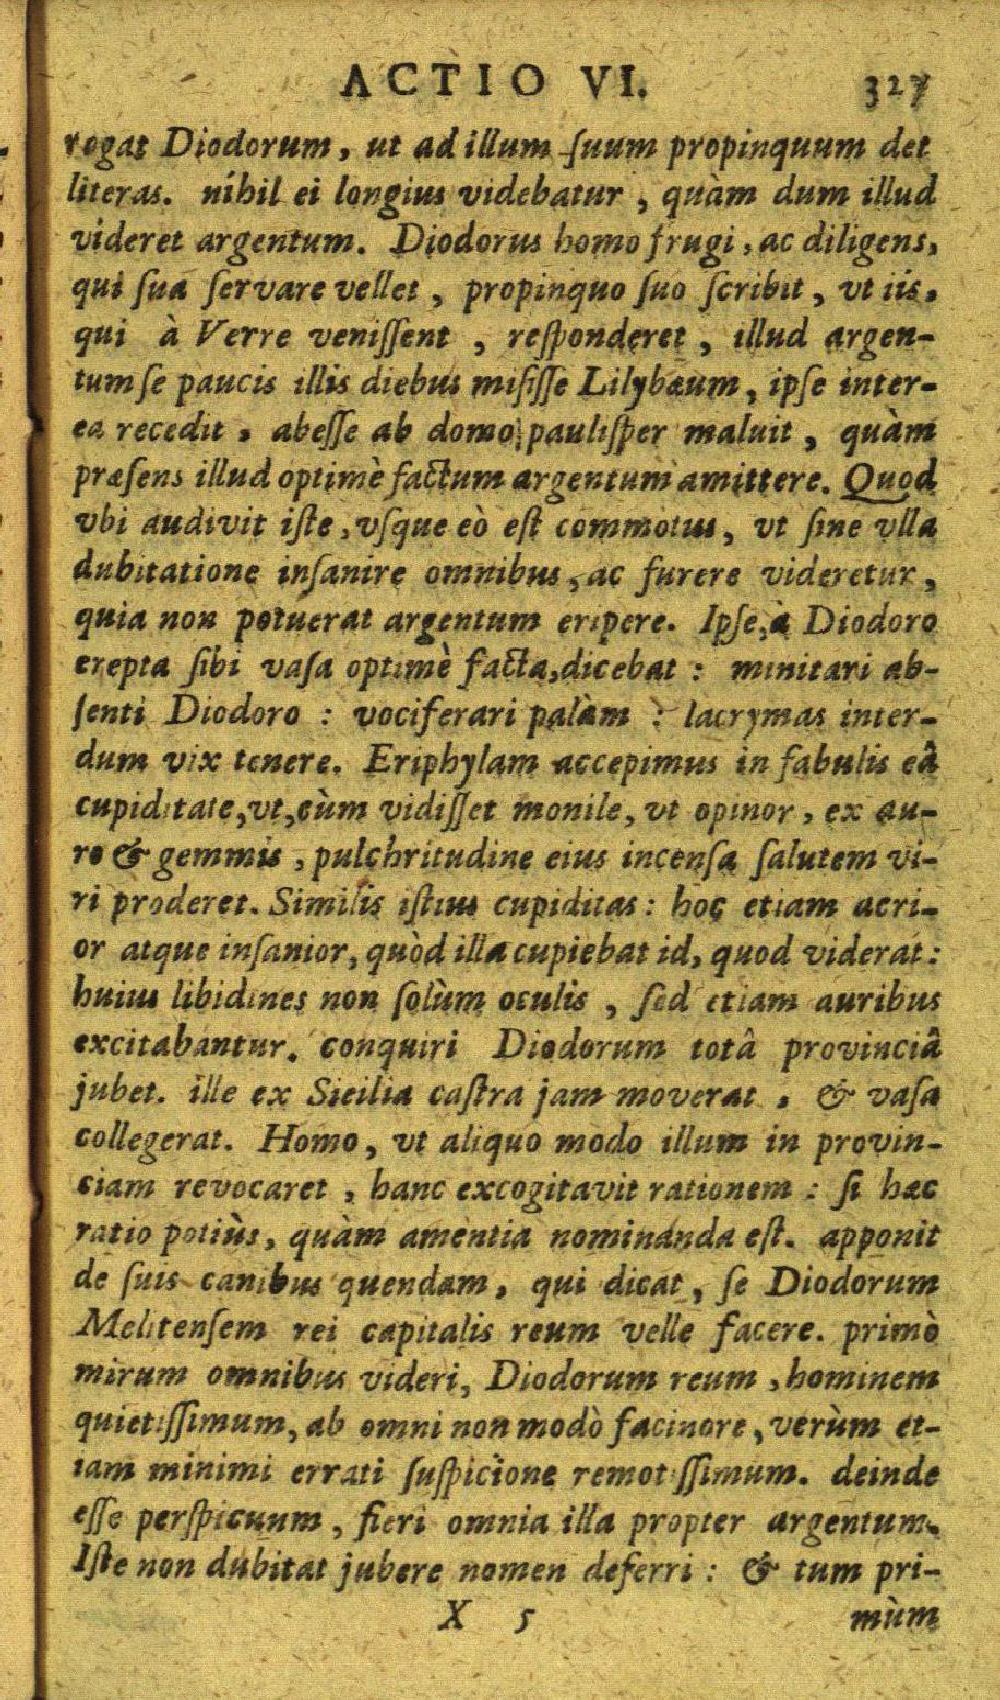 ACTIO VI. 327
rogat Diodorum, ut ad illum ſuum propinquum det
literas. nihil ei longius videbatur, quàm dum illud
videret argentum. Diodorus homo frugi, ac diligens,
qui ſua ſervare vellet, propinquo ſuo ſcribit, vt iis,
qui à Verre veniſſent, reſponderet, illud argen-
tum ſe paucis illis diebus miſiſſe Lilybæum, ipſe inter-
ea recedit, abeſſe ab domo pauliſper maluit, quàm
præſens illud optimè factum argentum amittere. Quod
vbi audivit iſte, vſque eò eſt commotus, vt ſine vlla
dubitatione inſanire omnibus, ac furere videretur,
quia non potuerat argentum eripere. Ipſe, à Diodoro
erepta ſibi vaſa optimè facta, dicebat: minitari ab-
ſenti Diodoro: vociferari palàm: lacrymas inter-
dum vix tenere. Eriphylam accepimus in fabulis eâ
cupiditate, vt, cùm vidiſſet monile, vt opinor, ex au-
ro & gemmis, pulchritudine eius incenſa ſalutem vi-
ri proderet. Similis iſtius cupiditas: hoc etiam acri-
or atque inſanior, quòd illa cupiebat id, quod viderat:
huius libidines non ſolùm oculis, ſed etiam auribus
excitabantur. conquiri Diodorum totâ provinciâ
jubet. ille ex Sicilia caſtra jam moverat, & vaſa
collegerat. Homo, vt aliquo modo illum in provin-
ciam revocaret, hanc excogitavit rationem: ſi hæc
ratio potiùs, quàm amentia nominanda eſt. apponit
de ſuis canibus quendam, qui dicat, ſe Diodorum
Melitenſem rei capitalis reum velle facere. primò
mirum omnibus videri, Diodorum reum, hominem
quietiſſimum, ab omni non modò facinore, verùm et-
iam minimi errati ſuſpicione remotiſſimum. deinde
eſſe perſpicuum, fieri omnia illa propter argentum.
Iſte non dubitat jubere nomen deferri: & tum pri-
X 5 mùm